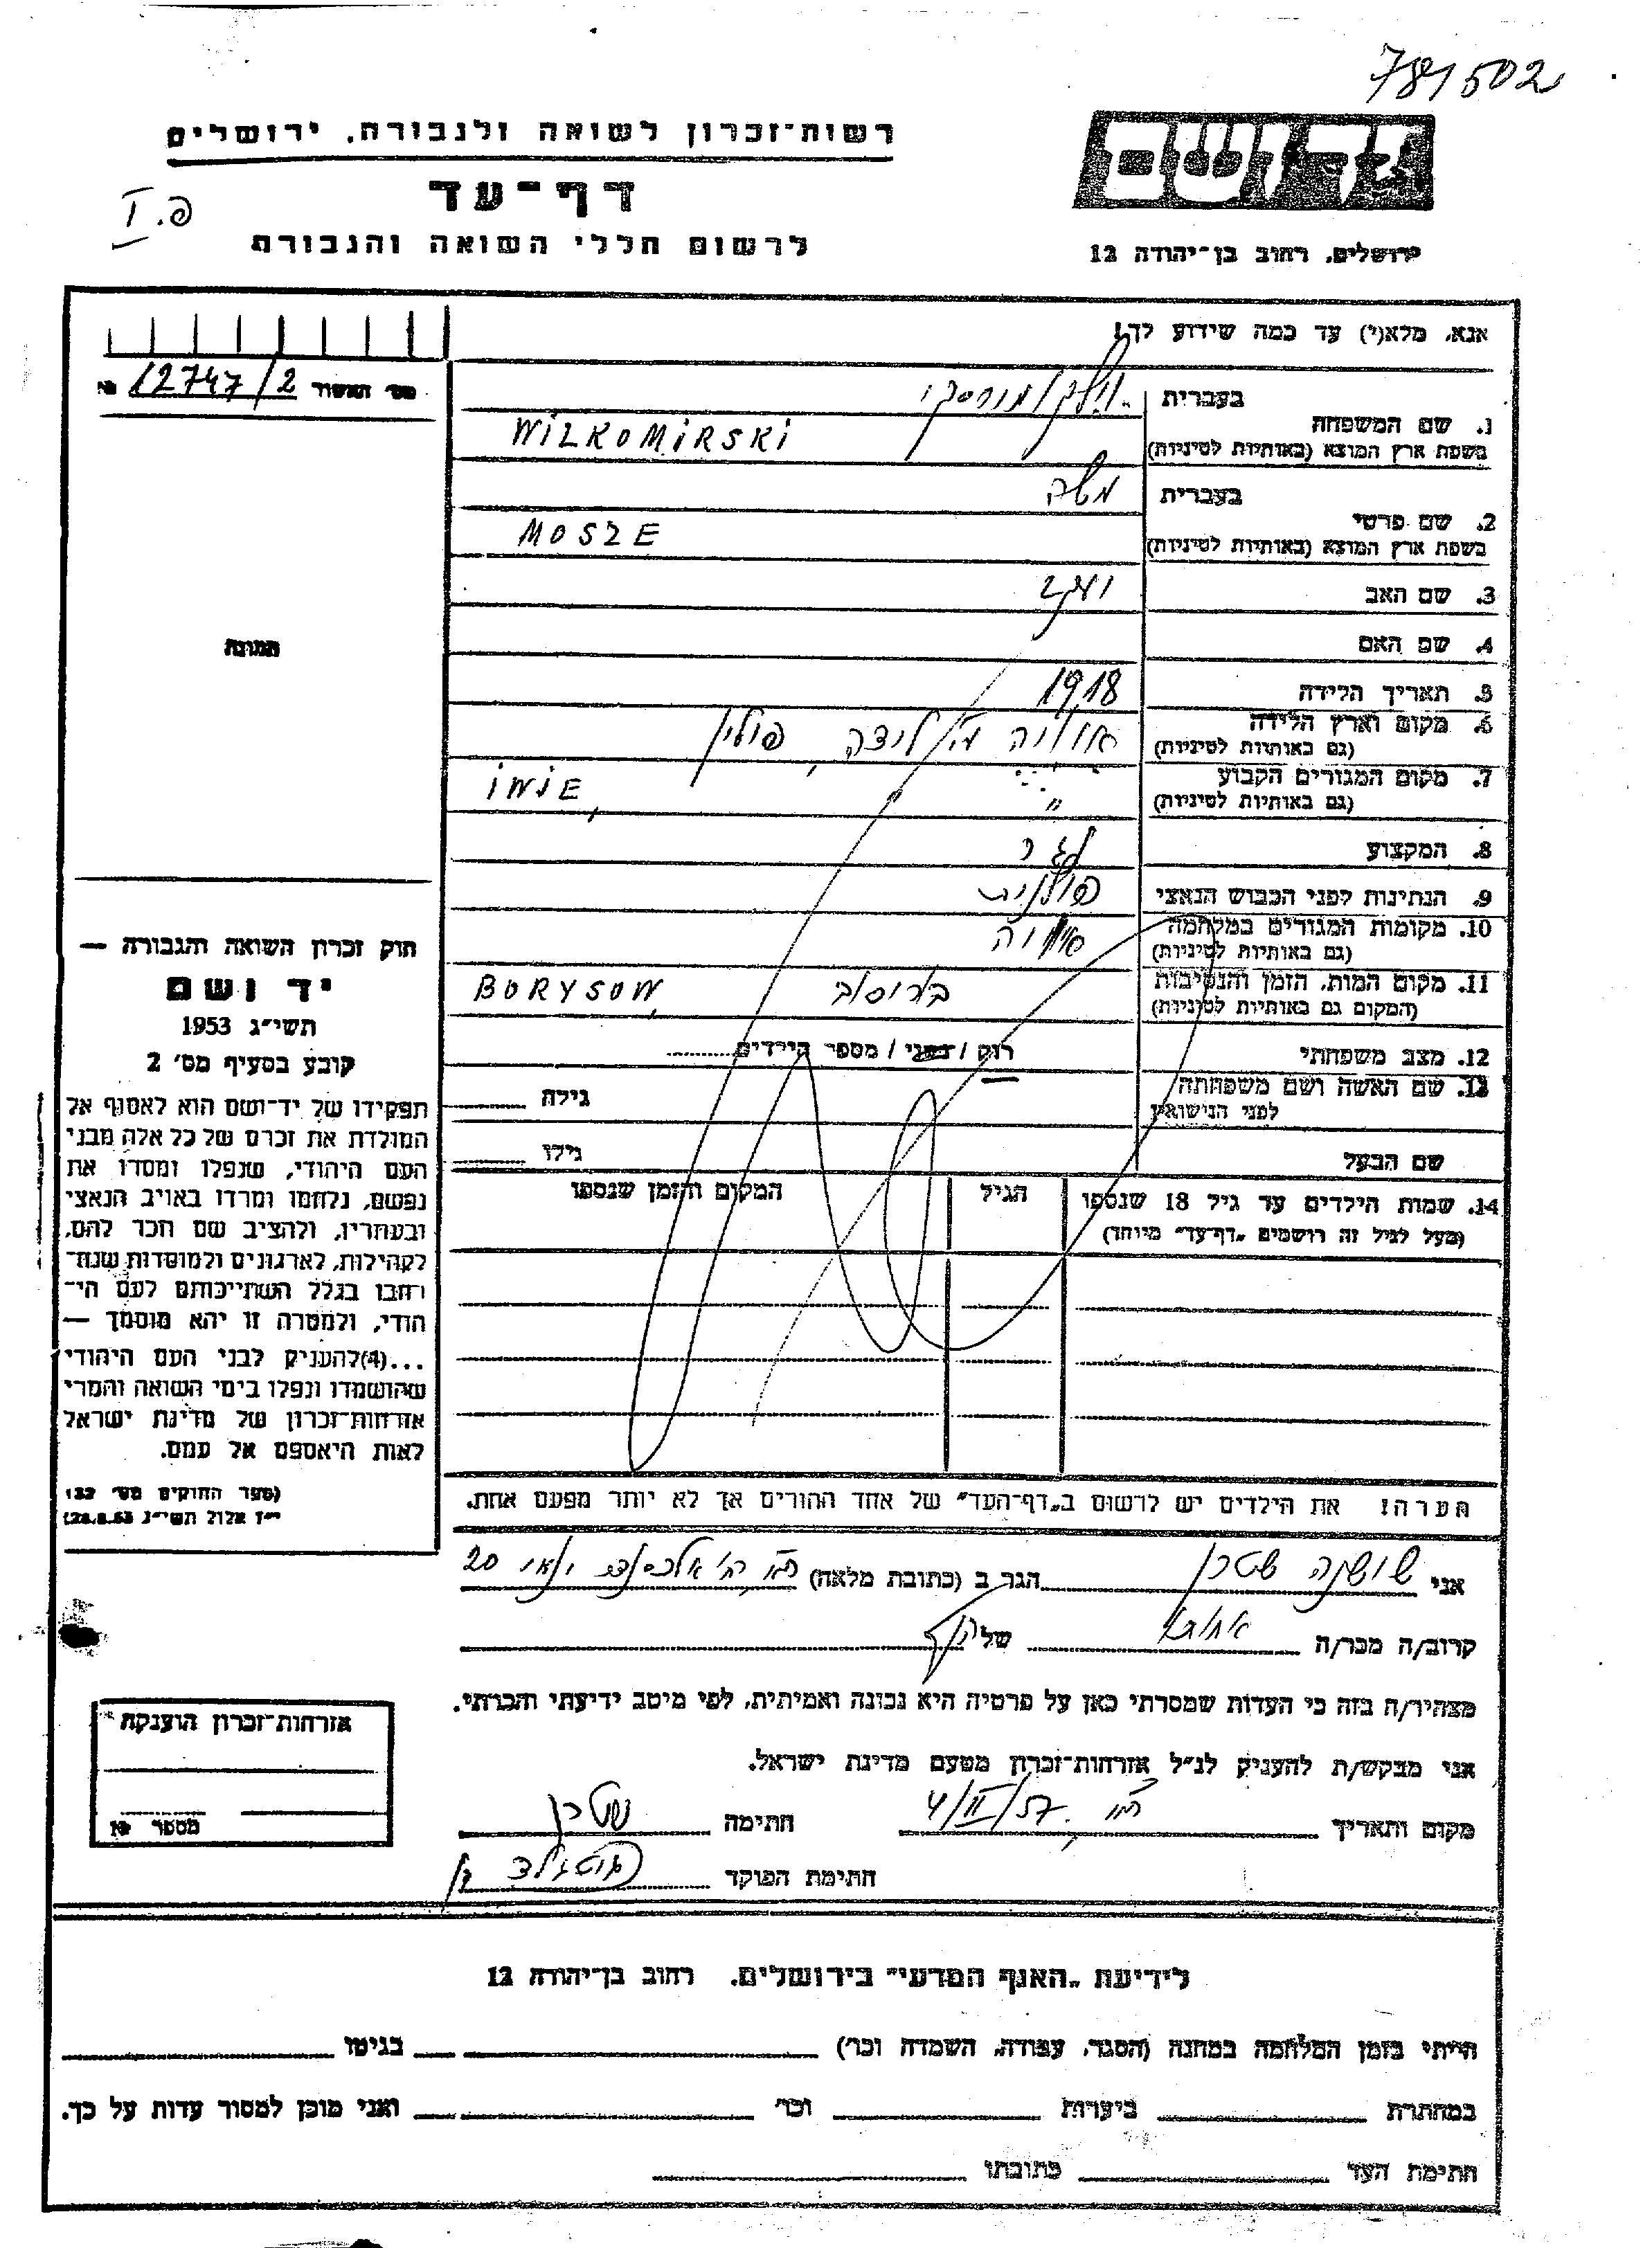 781502
רשות־זכרון לשואה ולגבורה, ירושלים
דף־עד
לרשום חללי השואה והגבורה
פ. I
יד ושם
ירושלים, רחוב בן־יהודה 12
אנא, מלא(י) עד כמה שידוע לך!
מס׳ האשור 12747/2 №
1. שם המשפחה
בעברית וילקומירסקי
בשפת ארץ המוצא (באותיות לטיניות) WILKOMIRSKI
2. שם פרטי
בעברית משה
בשפת ארץ המוצא (באותיות לטיניות) MOSZE
3. שם האב יעקב
4. שם האם
5. תאריך הלידה 1918
6. מקום וארץ הלידה פולין
(גם באותיות לטיניות)
7. מקום המגורים הקבוע
(גם באותיות לטיניות) " IWIE,
8. המקצוע
9. הנתינות לפני הכבוש הנאצי פולנית
10. מקומות המגורים במלחמה
(גם באותיות לטיניות)
11. מקום המות, הזמן והנסיבות בוריסוב BORYSOW,
(המקום גם באותיות לטיניות)
12. מצב משפחתי רוק / נשוי / מספר הילדים
13. שם האשה ושם משפחתה גילה
לפני הנישואין
שם הבעל גילו
14. שמות הילדים עד גיל 18 שנספו הגיל המקום והזמן שנספו
(מעל לגיל זה רושמים „דף־עד״ מיוחד)
הערה! את הילדים יש לרשום ב„דף־העד״ של אחד ההורים אך לא יותר מפעם אחת.
תמונה
חוק זכרון השואה והגבורה —
יד ושם
תשי״ג 1953
קובע בסעיף מס׳ 2
תפקידו של יד־ושם הוא לאסוף אל
המולדת את זכרם של כל אלה מבני
העם היהודי, שנפלו ומסרו את
נפשם, נלחמו ומרדו באויב הנאצי
ובעוזריו, ולהציב שם וזכר להם,
לקהילות, לארגונים ולמוסדות שנח־
רבו בגלל השתייכותם לעם הי־
הודי, ולמטרה זו יהא מוסמך —
...(4) להעניק לבני העם היהודי
שהושמדו ונפלו בימי השואה והמרי
אזרחות־זכרון של מדינת ישראל
לאות היאספם אל עמם.
(ספר החוקים מס׳ 132
י״ז אלול תשי״ג 28.8.53)
אני שושנה שטרן הגר ב (כתובת מלאה) 20
קרוב/ה מכר/ה אחותו של
מצהיר/ה בזה כי העדות שמסרתי כאן על פרטיה היא נכונה ואמיתית, לפי מיטב ידיעתי והכרתי.
אני מבקש/ת להעניק לנ״ל אזרחות־זכרון מטעם מדינת ישראל.
מקום ותאריך 4/II/57 חתימה שטרן
חתימת הפוקד
אזרחות־זכרון הוענקה
מספר №
לידיעת „האגף המדעי״ בירושלים, רחוב בן־יהודה 12
הייתי בזמן המלחמה במחנה (הסגר, עבודה, השמדה וכו׳) בגיטו
במחתרת ביערות וכו׳ ואני מוכן למסור עדות על כך.
חתימת העד כתובתו